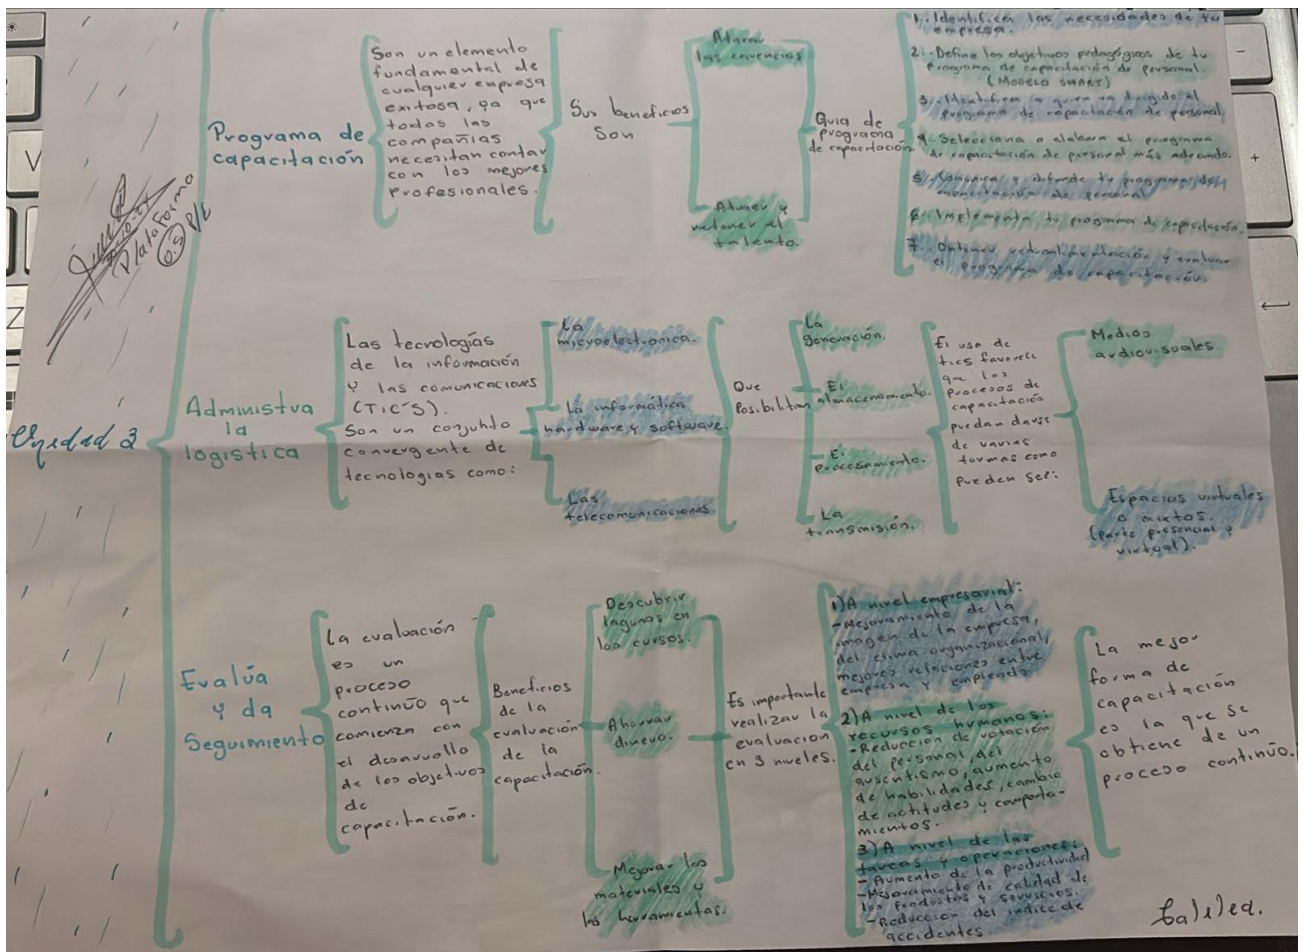 Unidad 3
Plataforma
0.5 P/E
Programa de
capacitación
Son un elemento
fundamental de
cualquier empresa
exitosa, ya que
todas las
compañías
necesitan contar
con los mejores
profesionales.
Sus beneficios
son
las carencias
Atraer y
retener el
talento.
Guia de
programa
de capacitación
1.- Identifica las necesidades de tu
empresa.
2.- Define los objetivos pedagógicos de tu
programa de capacitación de personal.
(MODELO SMART)
3.- Identifica a quien va dirigido el
programa de capacitación de personal
4.- Selecciona o elabora el programa
de capacitación de personal más adecuado.
5.- Comunica y defiende tu programa de
capacitación de personal
6.- Implementa tu programa de capacitación.
7.- Obtener retroalimentación y evaluar
el programa de capacitación.
Administra
la
logistica
Las tecnologías
de la información
y las comunicaciones
(TIC'S).
Son un conjunto
convergente de
tecnologias como:
La
microelectronica.
La informática
hardware y software.
Las
telecomunicaciones.
Que
Posibilitan
La
generación.
El
almacenamiento.
El
procesamiento.
La
transmisión.
El uso de
tics favorece
que los
procesos de
capacitación
puedan darse
de varias
formas como
pueden ser:
Medios
audiovisuales.
Espacios virtuales
o mixtos.
(parte presencial y
virtual).
Evalúa
y da
Seguimiento
La evaluación
es un
proceso
continúo que
comienza con
el desarrollo
de los objetivos
de
capacitación.
Beneficios
de la
evaluación
de la
capacitación.
Descubrir
lagunas en
los cursos.
Ahorrar
dinero.
Mejorar los
materiales y
las herramientas.
Es importante
realizar la
evaluacion
en 3 niveles.
1) A nivel empresarial:
- Mejoramiento de la
imagen de la empresa,
del clima organizacional,
mejores relaciones entre
empresa y empleado.
2) A nivel de los
recursos humanos:
- Reducción de rotación
del personal, del
ausentismo, aumento
de habilidades, cambio
de actitudes y comporta-
mientos.
3) A nivel de las
tareas y operaciones:
- Aumento de la productividad
- Mejoramiento de calidad de
los productos y servicios.
- Reducción del indice de
accidentes.
La mejor
forma de
capacitación
es la que se
obtiene de un
proceso continúo.
Galilea.